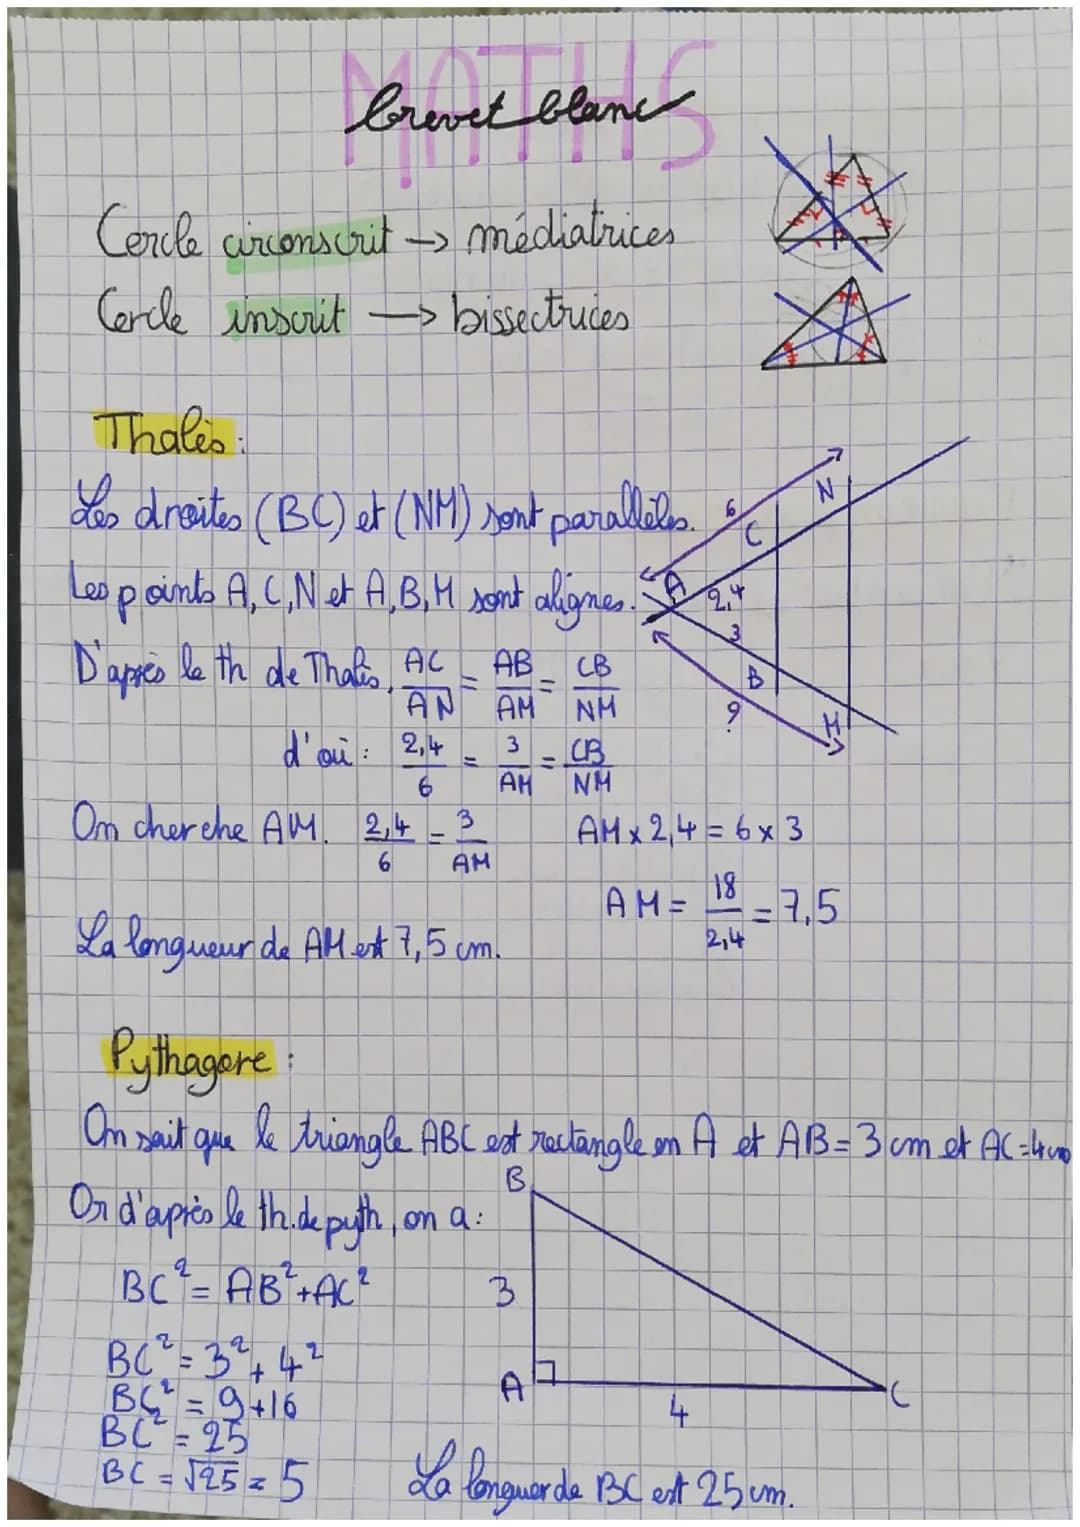 MATHS
brevet blanc
Cercle circonscrit → médiatrices
Cercle inscrit → bissectrices
Thalès :
Les droites (BC) et (NM) sont parallèles.
Les points A, C, N et A, B, M sont alignés.
D'après le th de Thalès, AC/AN = AB/AM = CB/NM
d'où : 2,4/6 = 3/AM = CB/NM
On cherche AM. 2,4/6 = 3/AM
AM x 2,4 = 6 x 3
AM = 18/2,4 = 7,5
La longueur de AM est 7,5 cm.
6
N
C
A
2,4
3
B
?
M
Pythagore :
On sait que le triangle ABC est rectangle en A et AB = 3 cm et AC = 4 cm
Or d'après le th. de pyth, on a :
BC² = AB² + AC²
BC² = 3² + 4²
BC² = 9 + 16
BC² = 25
BC = √25 = 5
B
3
A
4
C
La longuer de BC est 25 cm.